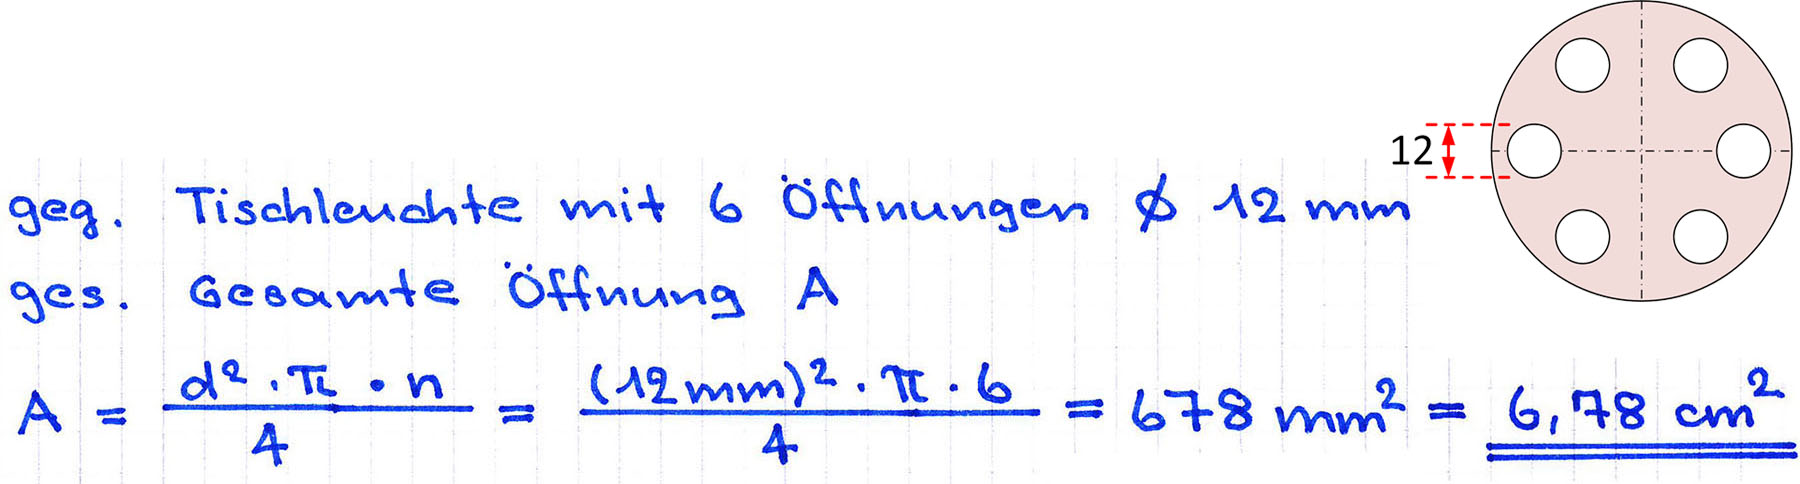 12
geg. Tischleuchte mit 6 Öffnungen ⌀ 12 mm
ges. Gesamte Öffnung A
A = d² · π · n / 4 = (12mm)² · π · 6 / 4 = 678 mm² = 6,78 cm²